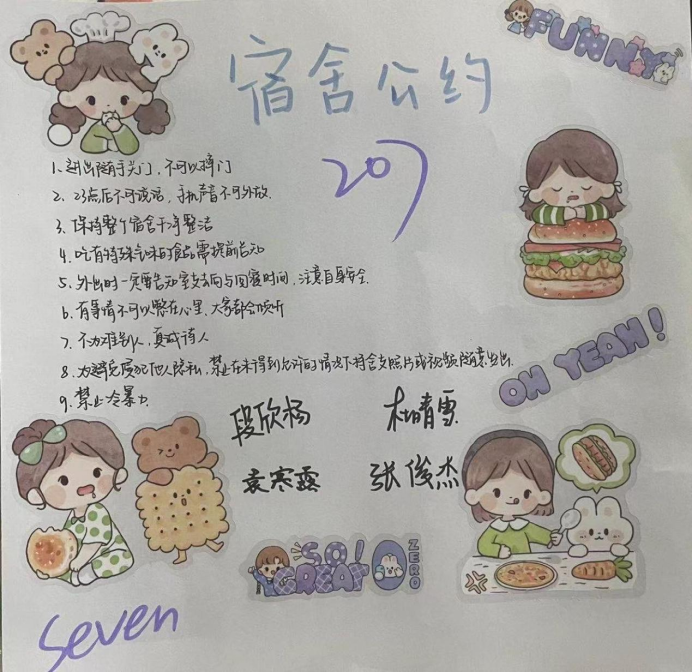 FUNNY
宿舍公约
207
1、进出随手关门,不可以摔门
2、23点后不可说话,手机声音不可外放.
3、保持整个宿舍干净整洁
4、吃有特殊气味的食品需提前告知
5、外出时一定要告知室友去向与回寝时间,注意自身安全.
6、有事情不可以憋在心里,大家都会倾听
7、不为难别人,真诚待人
8、为避免侵犯他人隐私,禁止在未得到允许的情况下将舍友照片或视频随意发出.
9、禁止冷暴力
OH YEAH!
段欣杨 杜晴雪
袁寒露 张俊杰
SO!
GREAT
ZERO
Seven